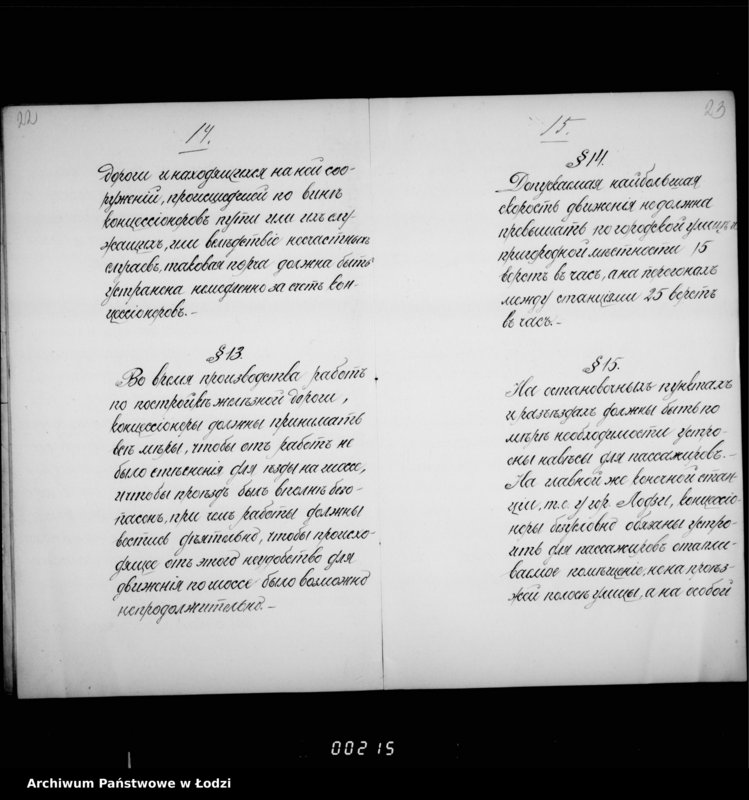 22
14.
дороги и находящихся на ней соо-
руженій, происшедшей по винѣ
концессіонеровъ пути или ихъ слу-
жащихъ, или вслѣдствіе несчастныхъ
случаевъ, таковая порча должна быть
устранена немедленно за счетъ кон-
цессіонеровъ.-
§ 13.
Во время производства работъ
по постройкѣ желѣзной дороги,
концессіонеры должны принимать
всѣ мѣры, чтобы отъ работъ не
было стѣсненія для ѣзды на шоссе,
и чтобы проѣздъ былъ вполнѣ безо-
пасенъ, при чемъ работы должны
вестись дѣятельно, чтобы происхо-
дящее отъ этого неудобство для
движенія по шоссе было возможно
непродолжительно.-
23
15.
§ 14.
Допускаемая наибольшая
скорость движенія не должна
превышать по городской улицѣ и
пригородной мѣстности 15
верстъ въ часъ, а на перегонахъ
между станціями 25 верстъ
въ часъ.-
§ 15.
На остановочныхъ пунктахъ
и разъѣздахъ должны быть по
мѣрѣ необходимости устро-
ены навѣсы для пассажировъ.-
На главной же конечной стан-
ціи, т.е. у гор. Лодзи, концессіо-
неры безусловно обязаны устро-
ить для пассажировъ отапли-
ваемое помѣщеніе, не на проѣз-
жей полосѣ улицы, а на особой
00215
Archiwum Państwowe w Łodzi